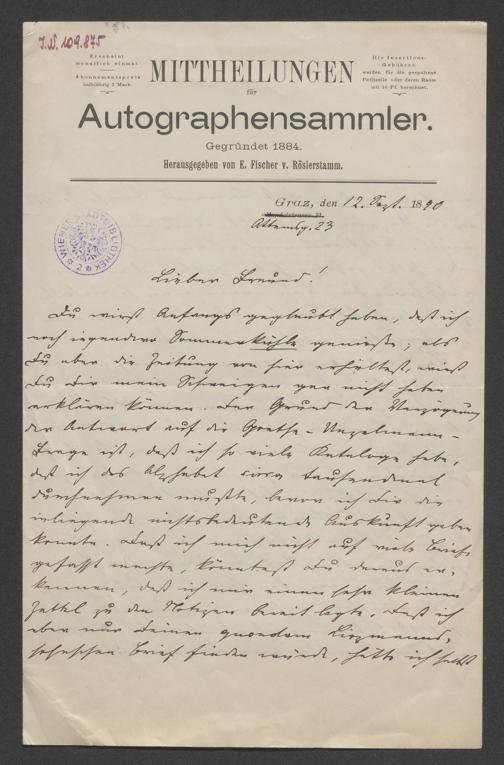 J.N. 109.875
Erscheint
monatlich einmal.
Abonnementspreis
halbjährig 2 Mark.
MITTHEILUNGEN
für
Die Insertions-
Gebühren
werden für die gespaltene
Petitzeile oder deren Raum
mit 10 Pf. berechnet.
Autographensammler.
Gegründet 1884.
Herausgegeben von E. Fischer v. Röslerstamm.
Graz, den 12. Sept. 1890
Attemsg. 23
WIENER STADTBIBLIOTHEK
Lieber Freund!
Du wirst Anfangs geglaubt haben, daß ich
noch irgendwo Sommerkühle genieße; als
Du aber die Zeitung von hier erhieltest, wirst
Du Dir mein Schweigen gar nicht haben
erklären können. Der Grund der Verzögerung
der Antwort auf die Goethe-Unzelmann-
Frage ist, daß ich so viele Kataloge habe,
daß ich das Alphabet circa tausendmal
durchnehmen mußte, bevor ich Dir die
inliegende nichtsbedeutende Auskunft geben
konnte. Daß ich mich nicht auf viele Briefe
gefaßt machte, könntest Du daraus er-
kennen, daß ich mir einen sehr kleinen
Zettel zu den Notizen bereit legte. Daß ich
aber nur Deinen quondam
Brief finden würde, hätte ich selbst